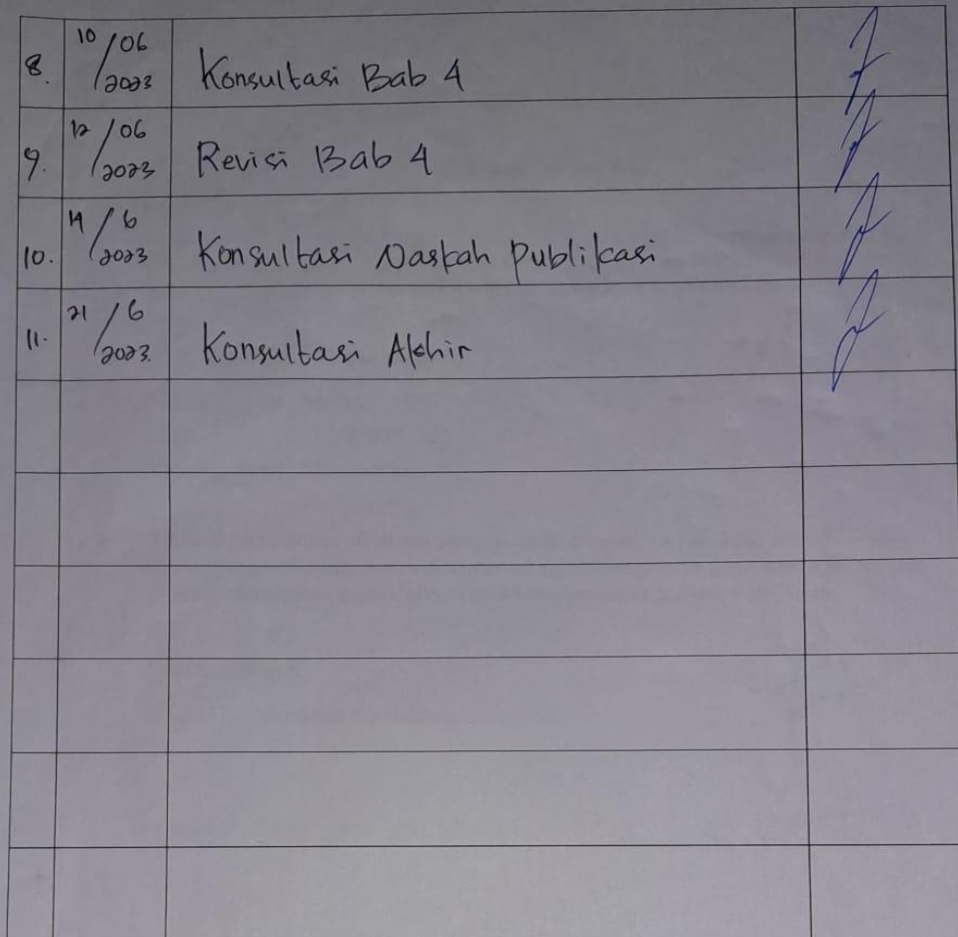 8. 10/06/2023 Konsultasi Bab 4
9. 12/06/2023 Revisi Bab 4
10. 14/6/2023 Konsultasi Naskah Publikasi
11. 21/6/2023. Konsultasi Akhir